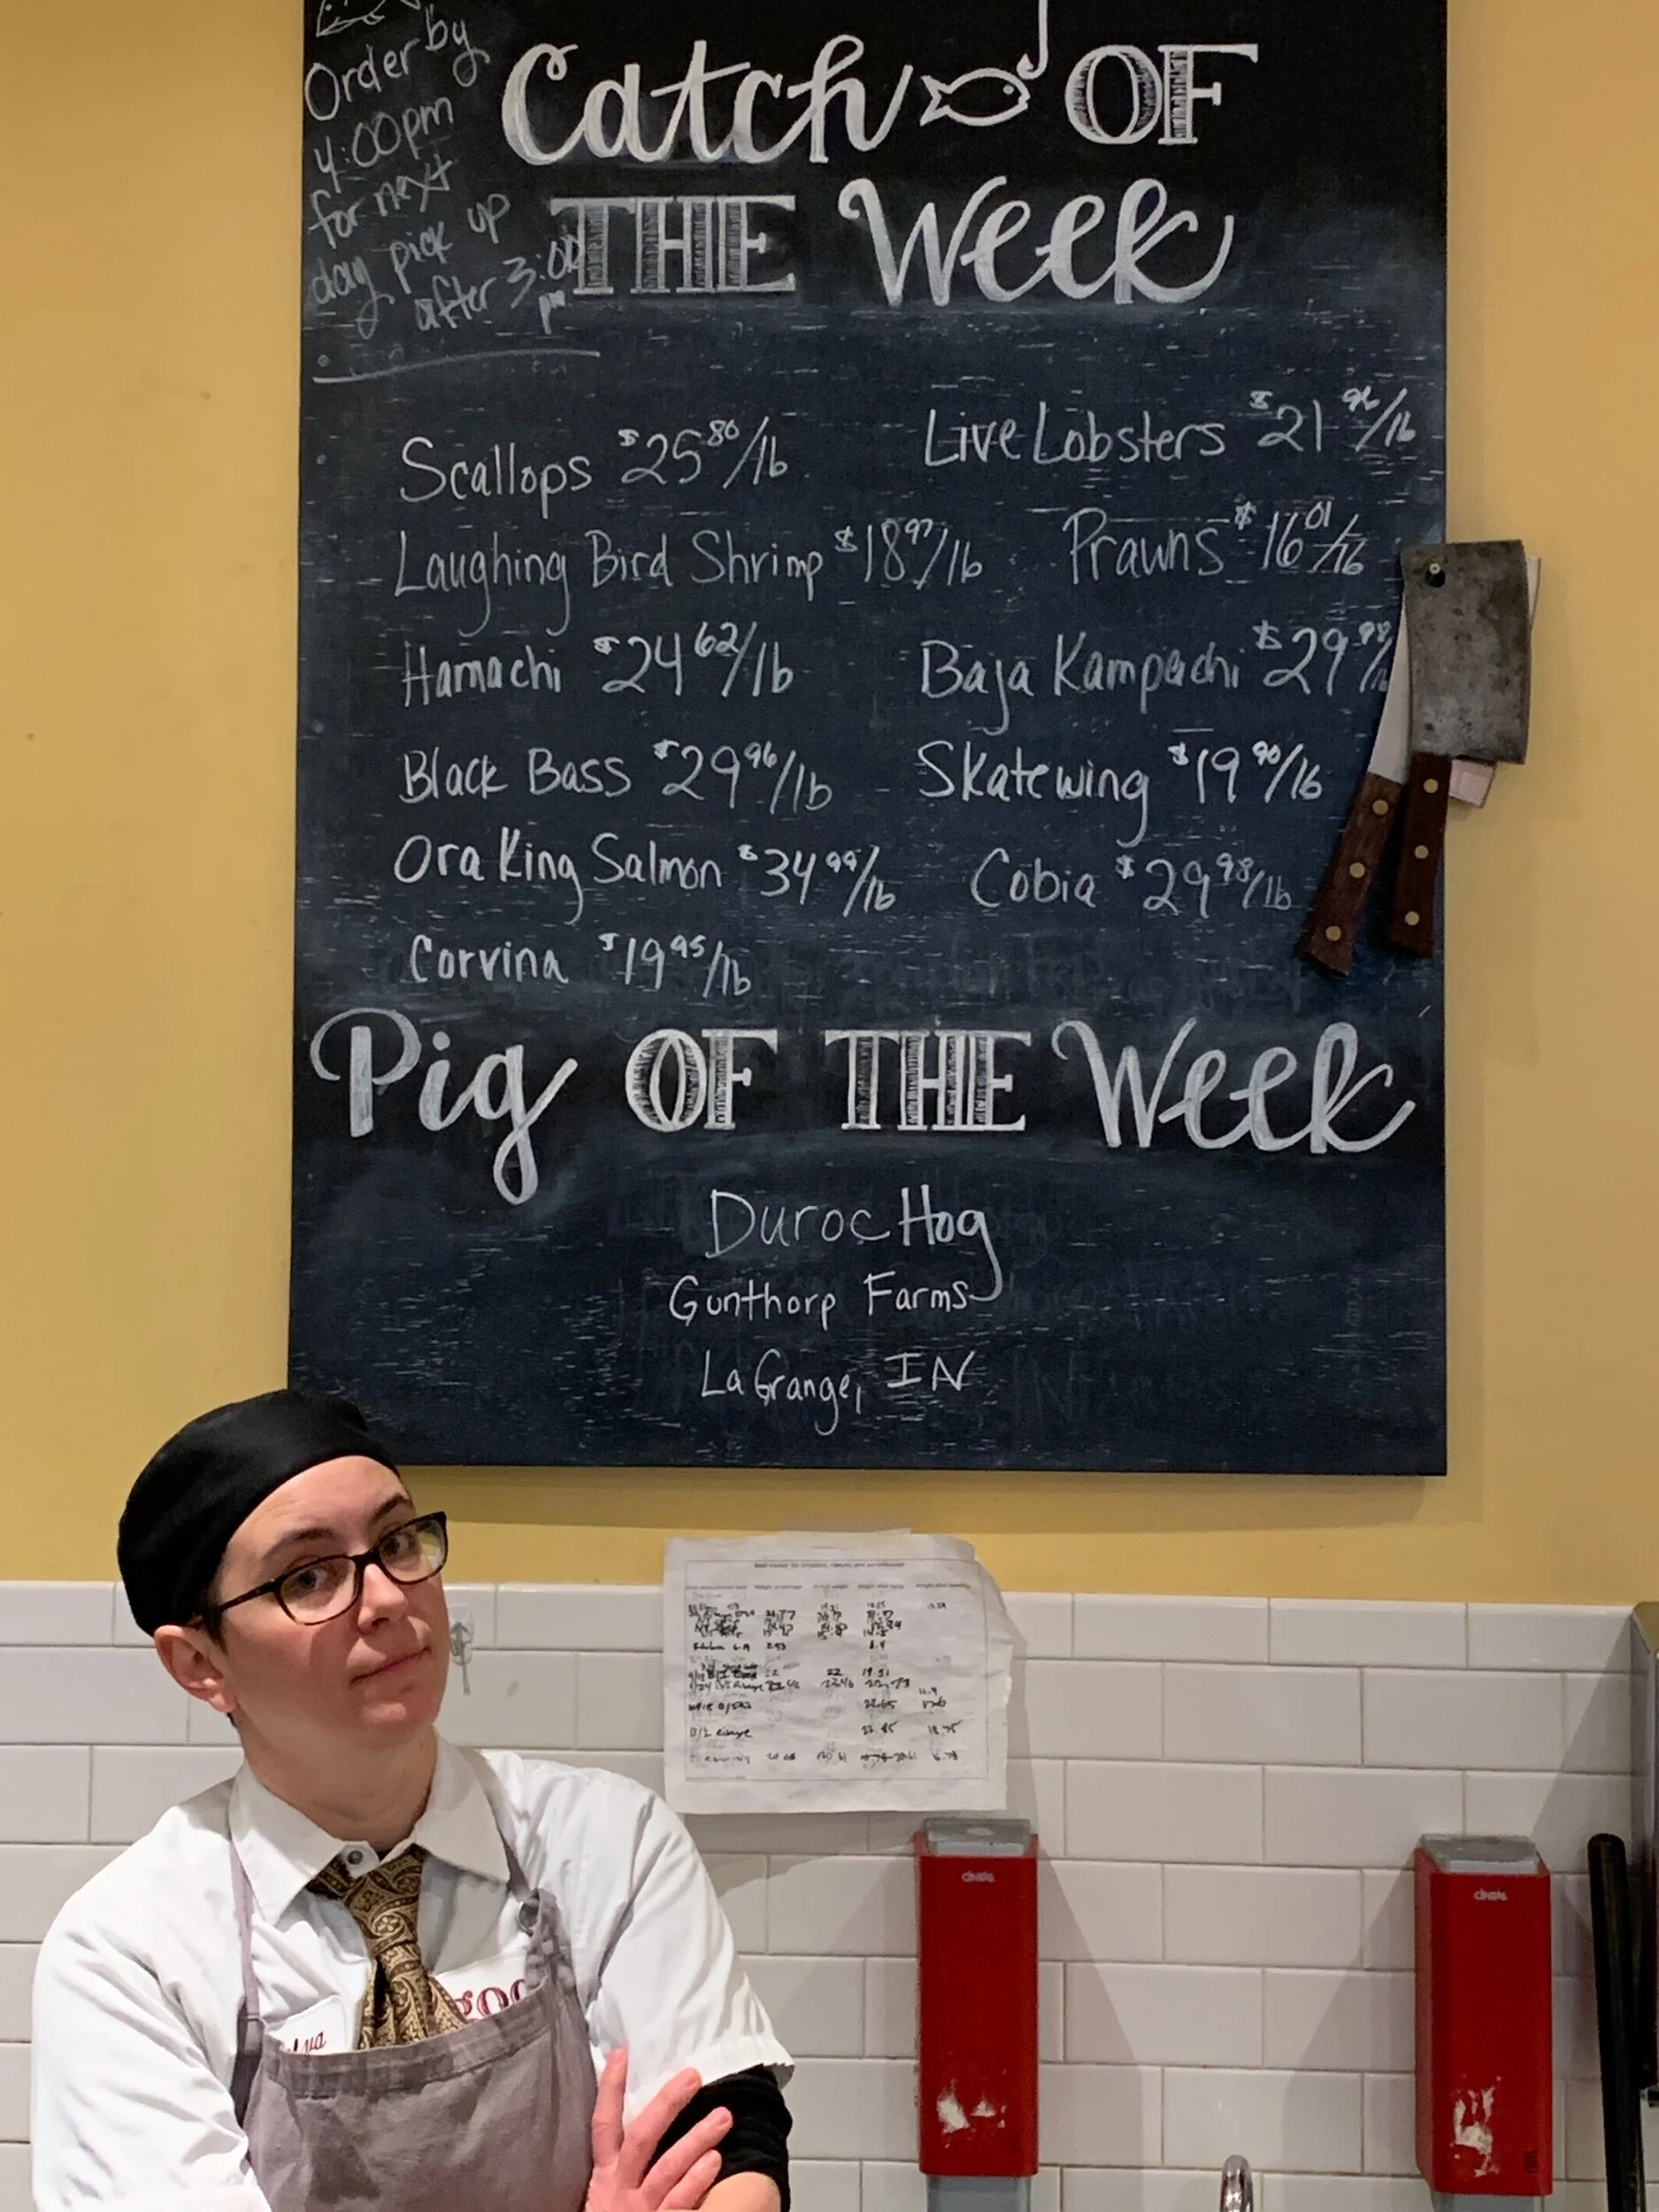 Order by
4:00pm
for next
day pick up
after 3:00
pm
Catch OF
THE Week
Scallops $25 80/lb
Live Lobsters $21 96/lb
Laughing Bird Shrimp $18 97/lb
Prawns $16 01/lb
Hamachi $24 62/lb
Baja Kampachi $29 98/lb
Black Bass $29 96/lb
Skatewing $19 90/lb
Ora King Salmon $34 99/lb
Cobia $29 98/lb
Corvina $19 95/lb
Pig OF THE Week
Duroc Hog
Gunthorp Farms
LaGrange, IN
CINTAS
CINTAS